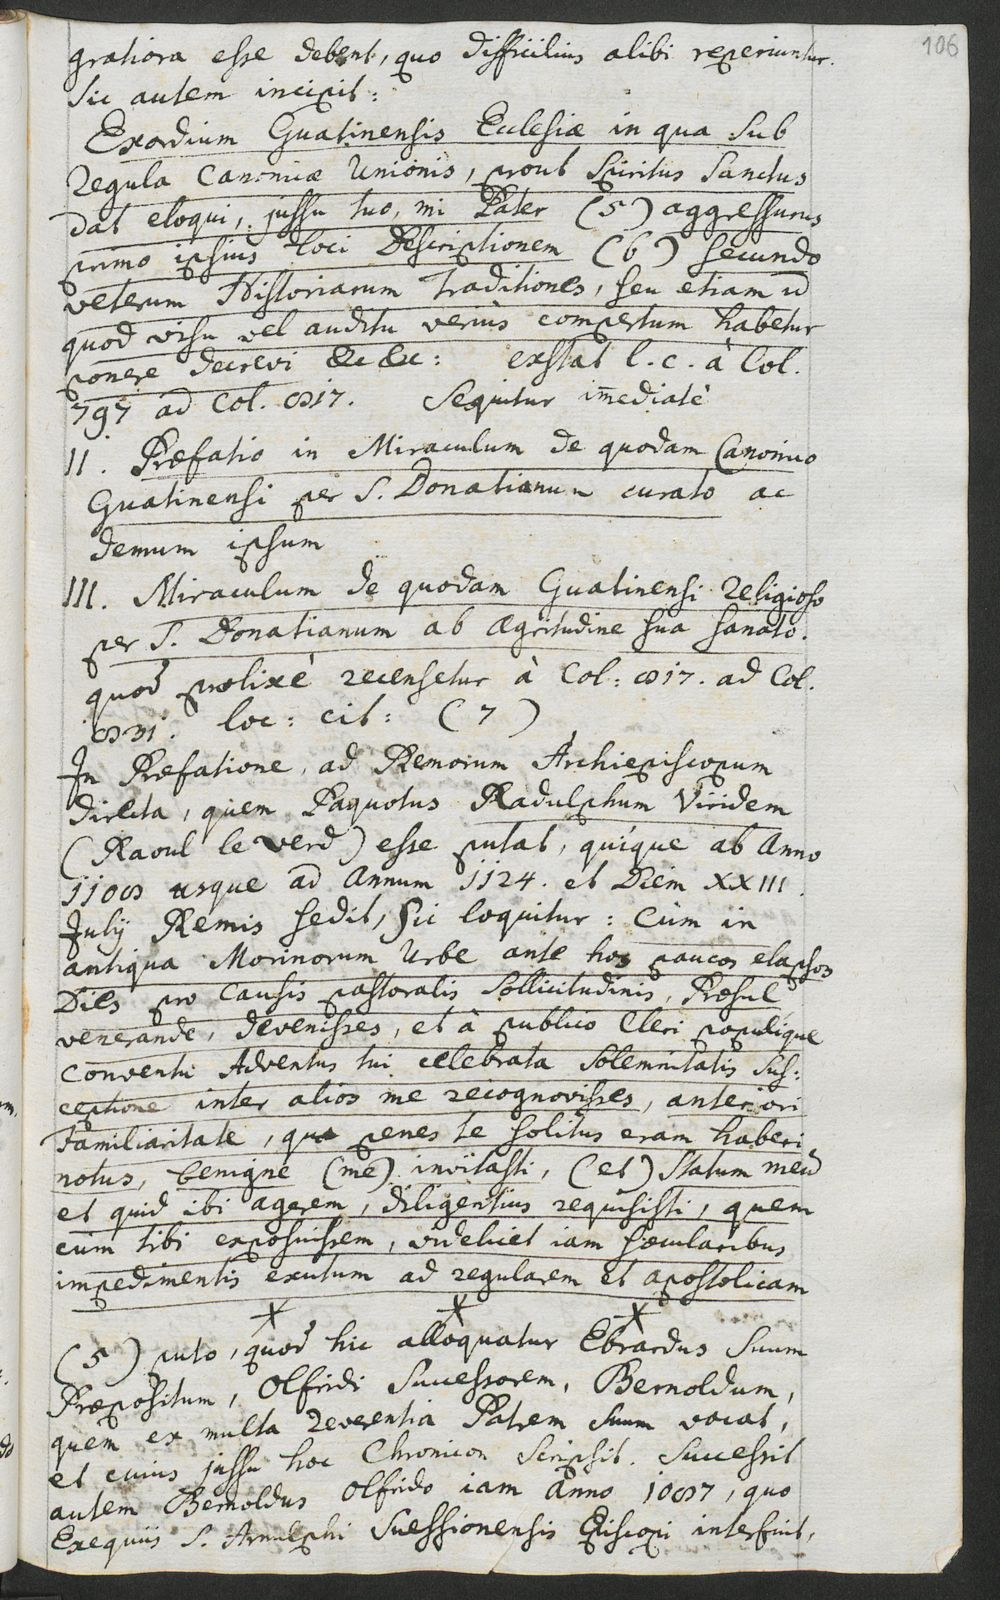 106
gratiora esse debent, quo difficilius alibi reperiuntur.
Sic autem incipit:
Exordium Guatinensis Ecclesiæ in qua sub
Regula Canonicæ Unionis, prout Spiritus Sanctus
dat eloqui, jussu tuo, mi Pater (5) aggressurus
primo ipsius loci Descriptionem (6) secundo
veterum Historiarum traditiones, seu etiam id
quod visu vel auditu verius compertum habetur
ponere decrevi &c &c: exstat l. c. à Col.
797 ad Col. 817. Sequitur im̄ediatè
II. Præfatio in Miraculum de quodam Canonico
Guatinensi per S. Donatianum curato ac
demum ipsum
III. Miraculum de quodam Guatinensi Religioso
per S. Donatianum ab ægritudine sua sanato.
quod prolixè recensetur à Col: 817. ad Col.
831. loc: cit: (7)
In Præfatione, ad Remorum Archiepiscopum
directa, quem Paquotus Radulphum Viridem
(Raoul le verd) esse putat, quique ab Anno
1108 usque ad Annum 1124. et Diem XXIII.
Julij Remis sedit, sic loquitur: Cùm in
antiqua Morinorum Urbe ante hos paucos elapsos
Dies pro Causis pastoralis sollicitudinis, Præsul
venerande, devenisses, et à publico Cleri populique
conventu Adventus tui celebrata solemnitatis sus:
ceptione inter alios me recognovisses, anteriori
familiaritate, qua penes te solitus eram haberi
notus, benigne (me) invitasti, (et) statum meū
et quid ibi agerem, diligentius requisisti, quem
cum tibi exposuissem, videlicet iam sæcularibus
impedimentis exutum ad regularem et apostolicam
(5) puto, quod hic alloquatur Ebrardus suum
Præpositum, Olfridi Successorem, Bernoldum,
quem ex multa reverentia Patrem suum vocat,
et cuius jussu hoc Chronicon scripsit. Successit
autem Bernoldus Olfrido iam anno 1087, quo
Exequiis S. Arnulphi Suessionensis Episcopi interfuit,